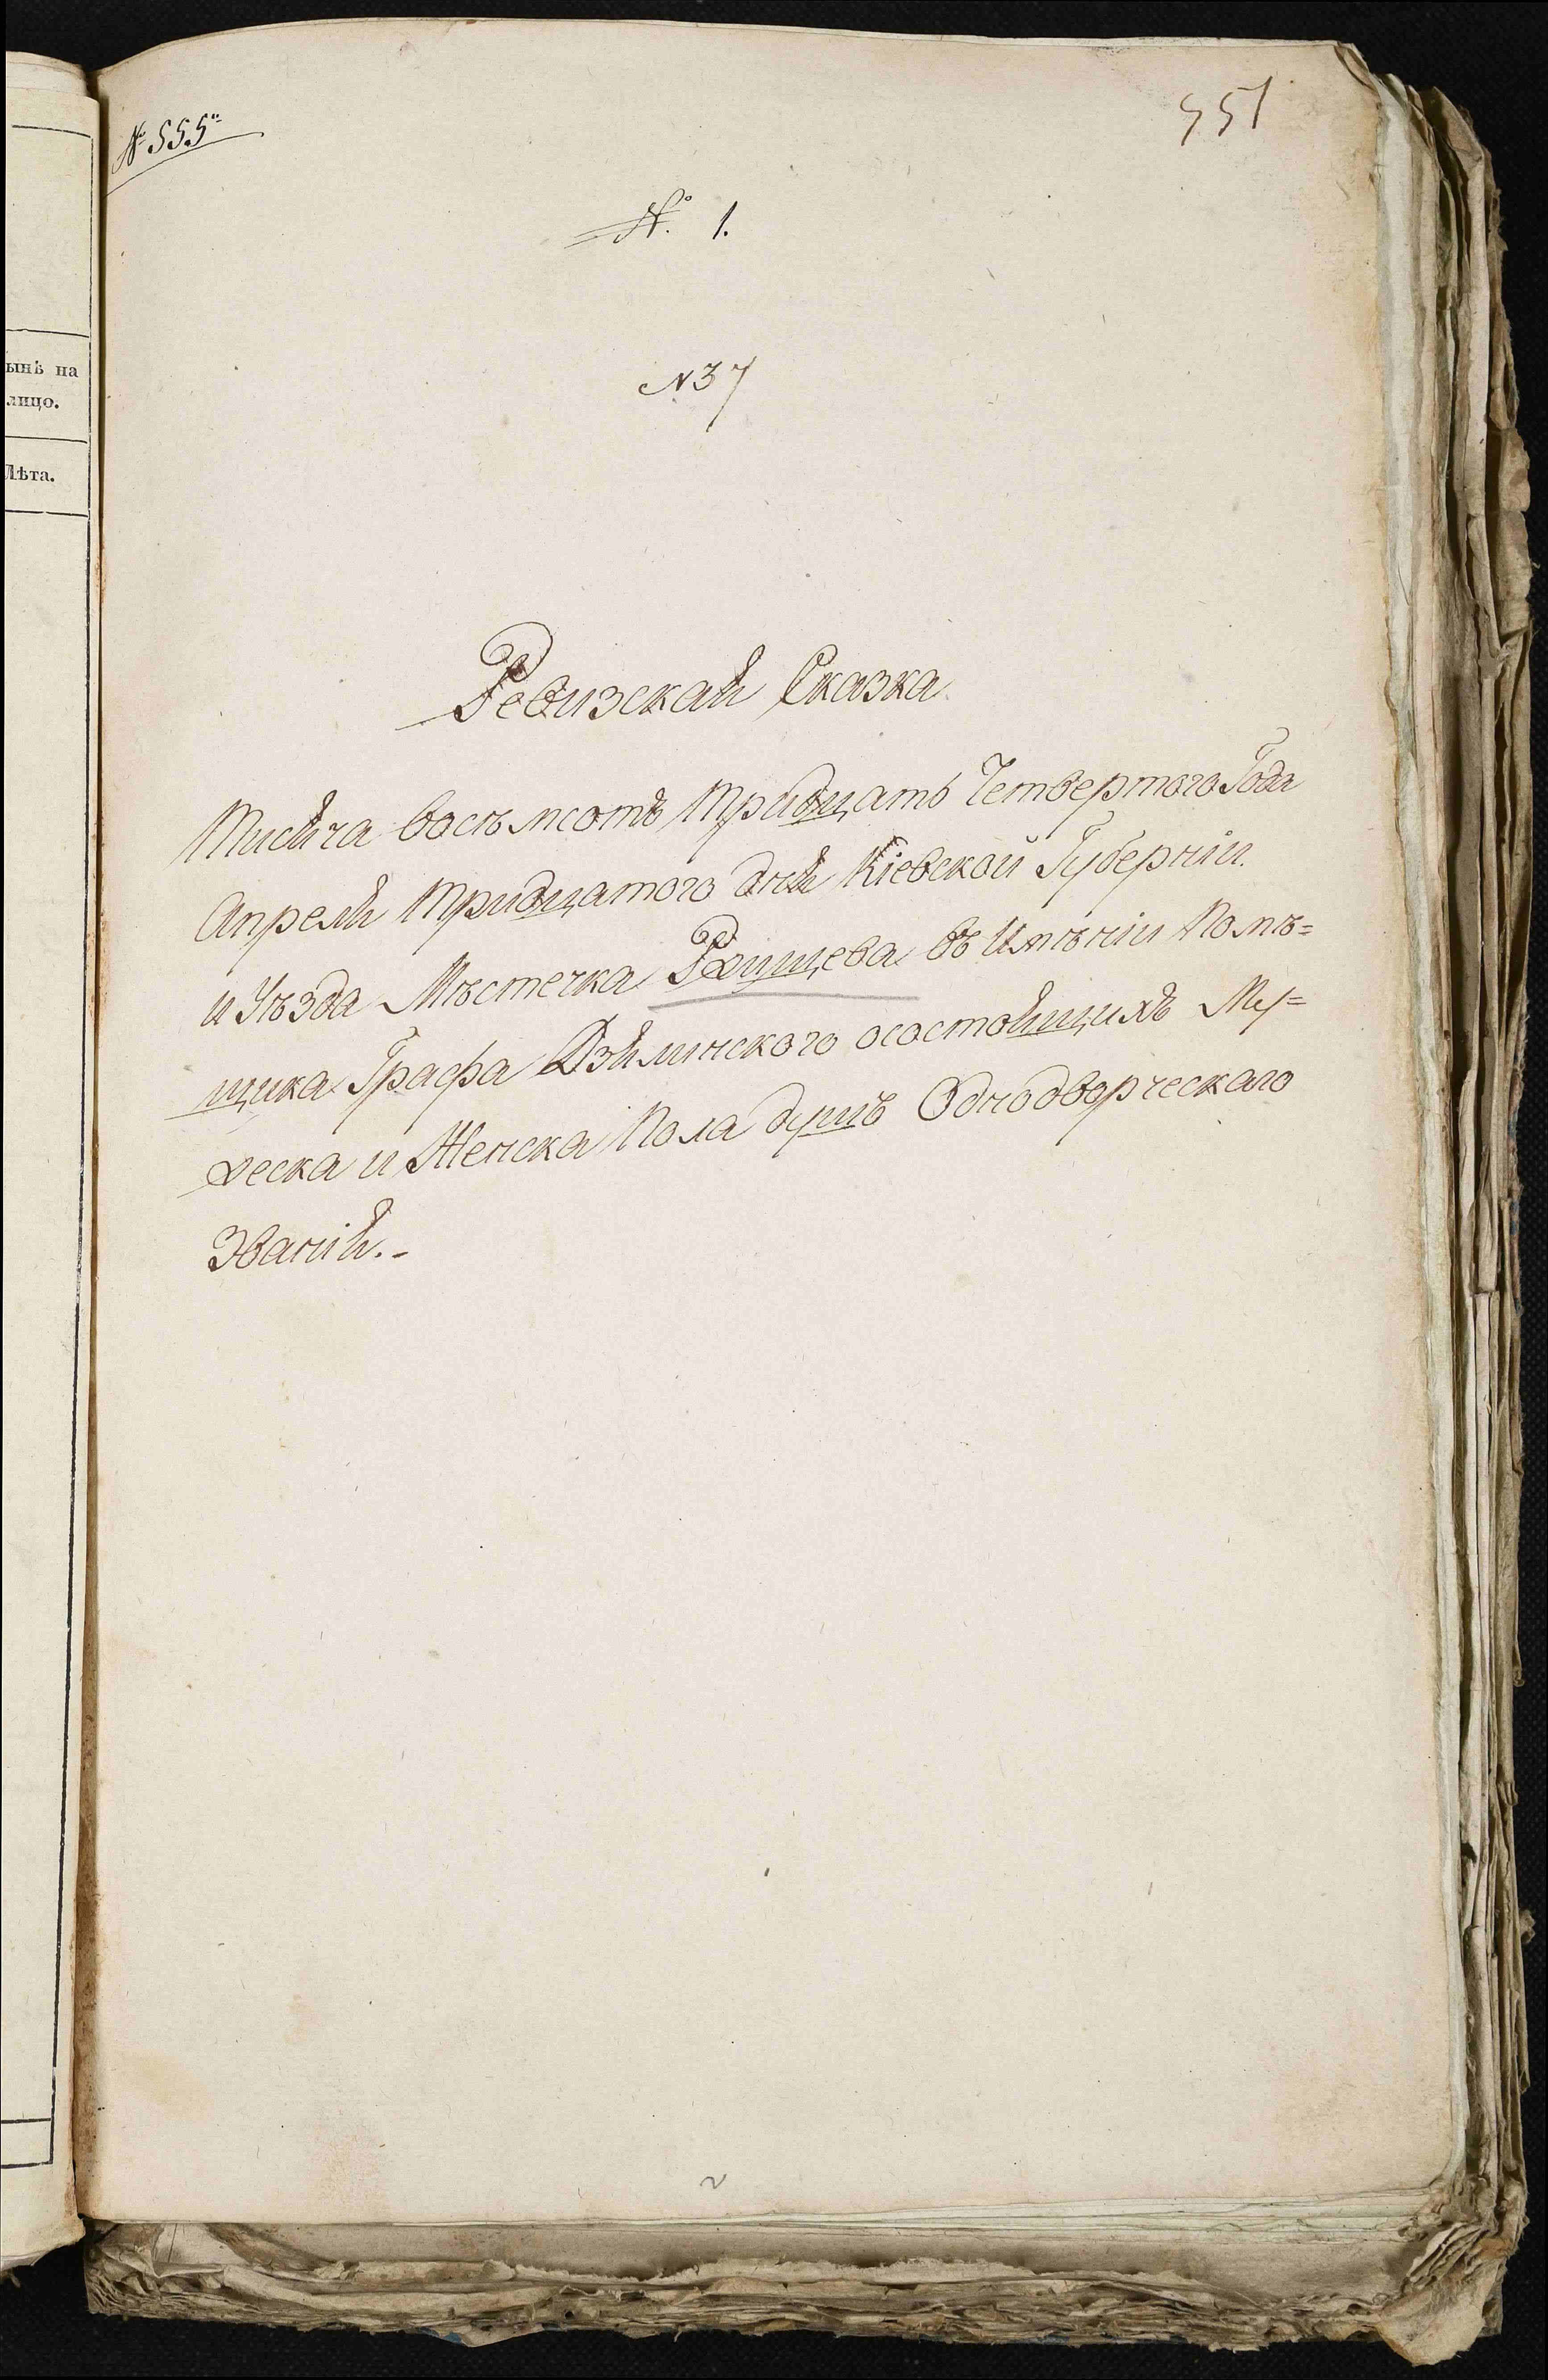 № 555
551
№ 1.
№ 37
ынѣ на
лицо.
Лѣта.
Ревизская Сказка
Тисяча восѣмсотъ Тридцать Четвертого Года
Апреля Тридцатого дня Кіевской Губерніи
и Уѣзда Мѣстечка Ржищева въ Имѣніи Помѣ=
щика Графа Дзялинского осостоящихъ Му=
жеска и Женска Пола душъ Однодворческаго
Званія.-